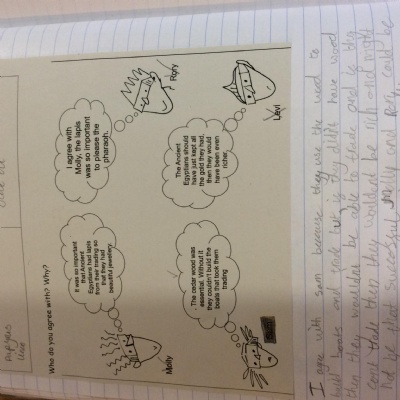 Who do you agree with? Why?
It was so important
that Ancient
Egyptians had lapis
from their trading so
that they had
beautiful jewellery.
Molly
I agree with
Molly, the lapis
was so important
to please the
pharaoh.
Rory
The cedar wood was
essential. Without it
they couldn't build the
boats that took them
trading
The Ancient
Egyptians should
have just kept all
the gold they had,
then they would
have been even
richer.
Levi
I agree with sam because they use the wood to
build boats and trade but if they didnt have wood
then they wouldnt be able to trade and is they
cant trade then they wouldnt be rich and might
not be that successful and Rory could be